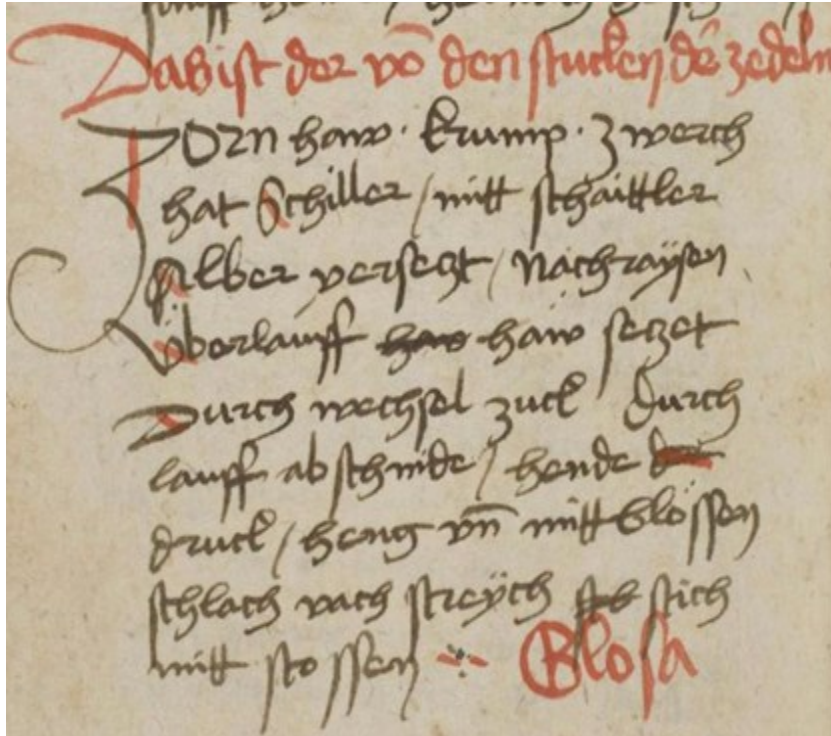 Das ist der vō den stucken dˀ zedeln
Zorn haw · krump · zwerch
hat Schiller / mitt schaittler
alber versetzt / Nachraÿsen
Überlauff haw setzet
Durch wechsel zuck Durch
lauff ab schnide / hende
druck / heng vn̄ mitt blössen
schlach vach streÿch stich
mitt stossen Glosa